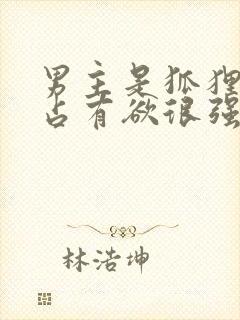 男主是狐狸
占有欲很强
林浩坤